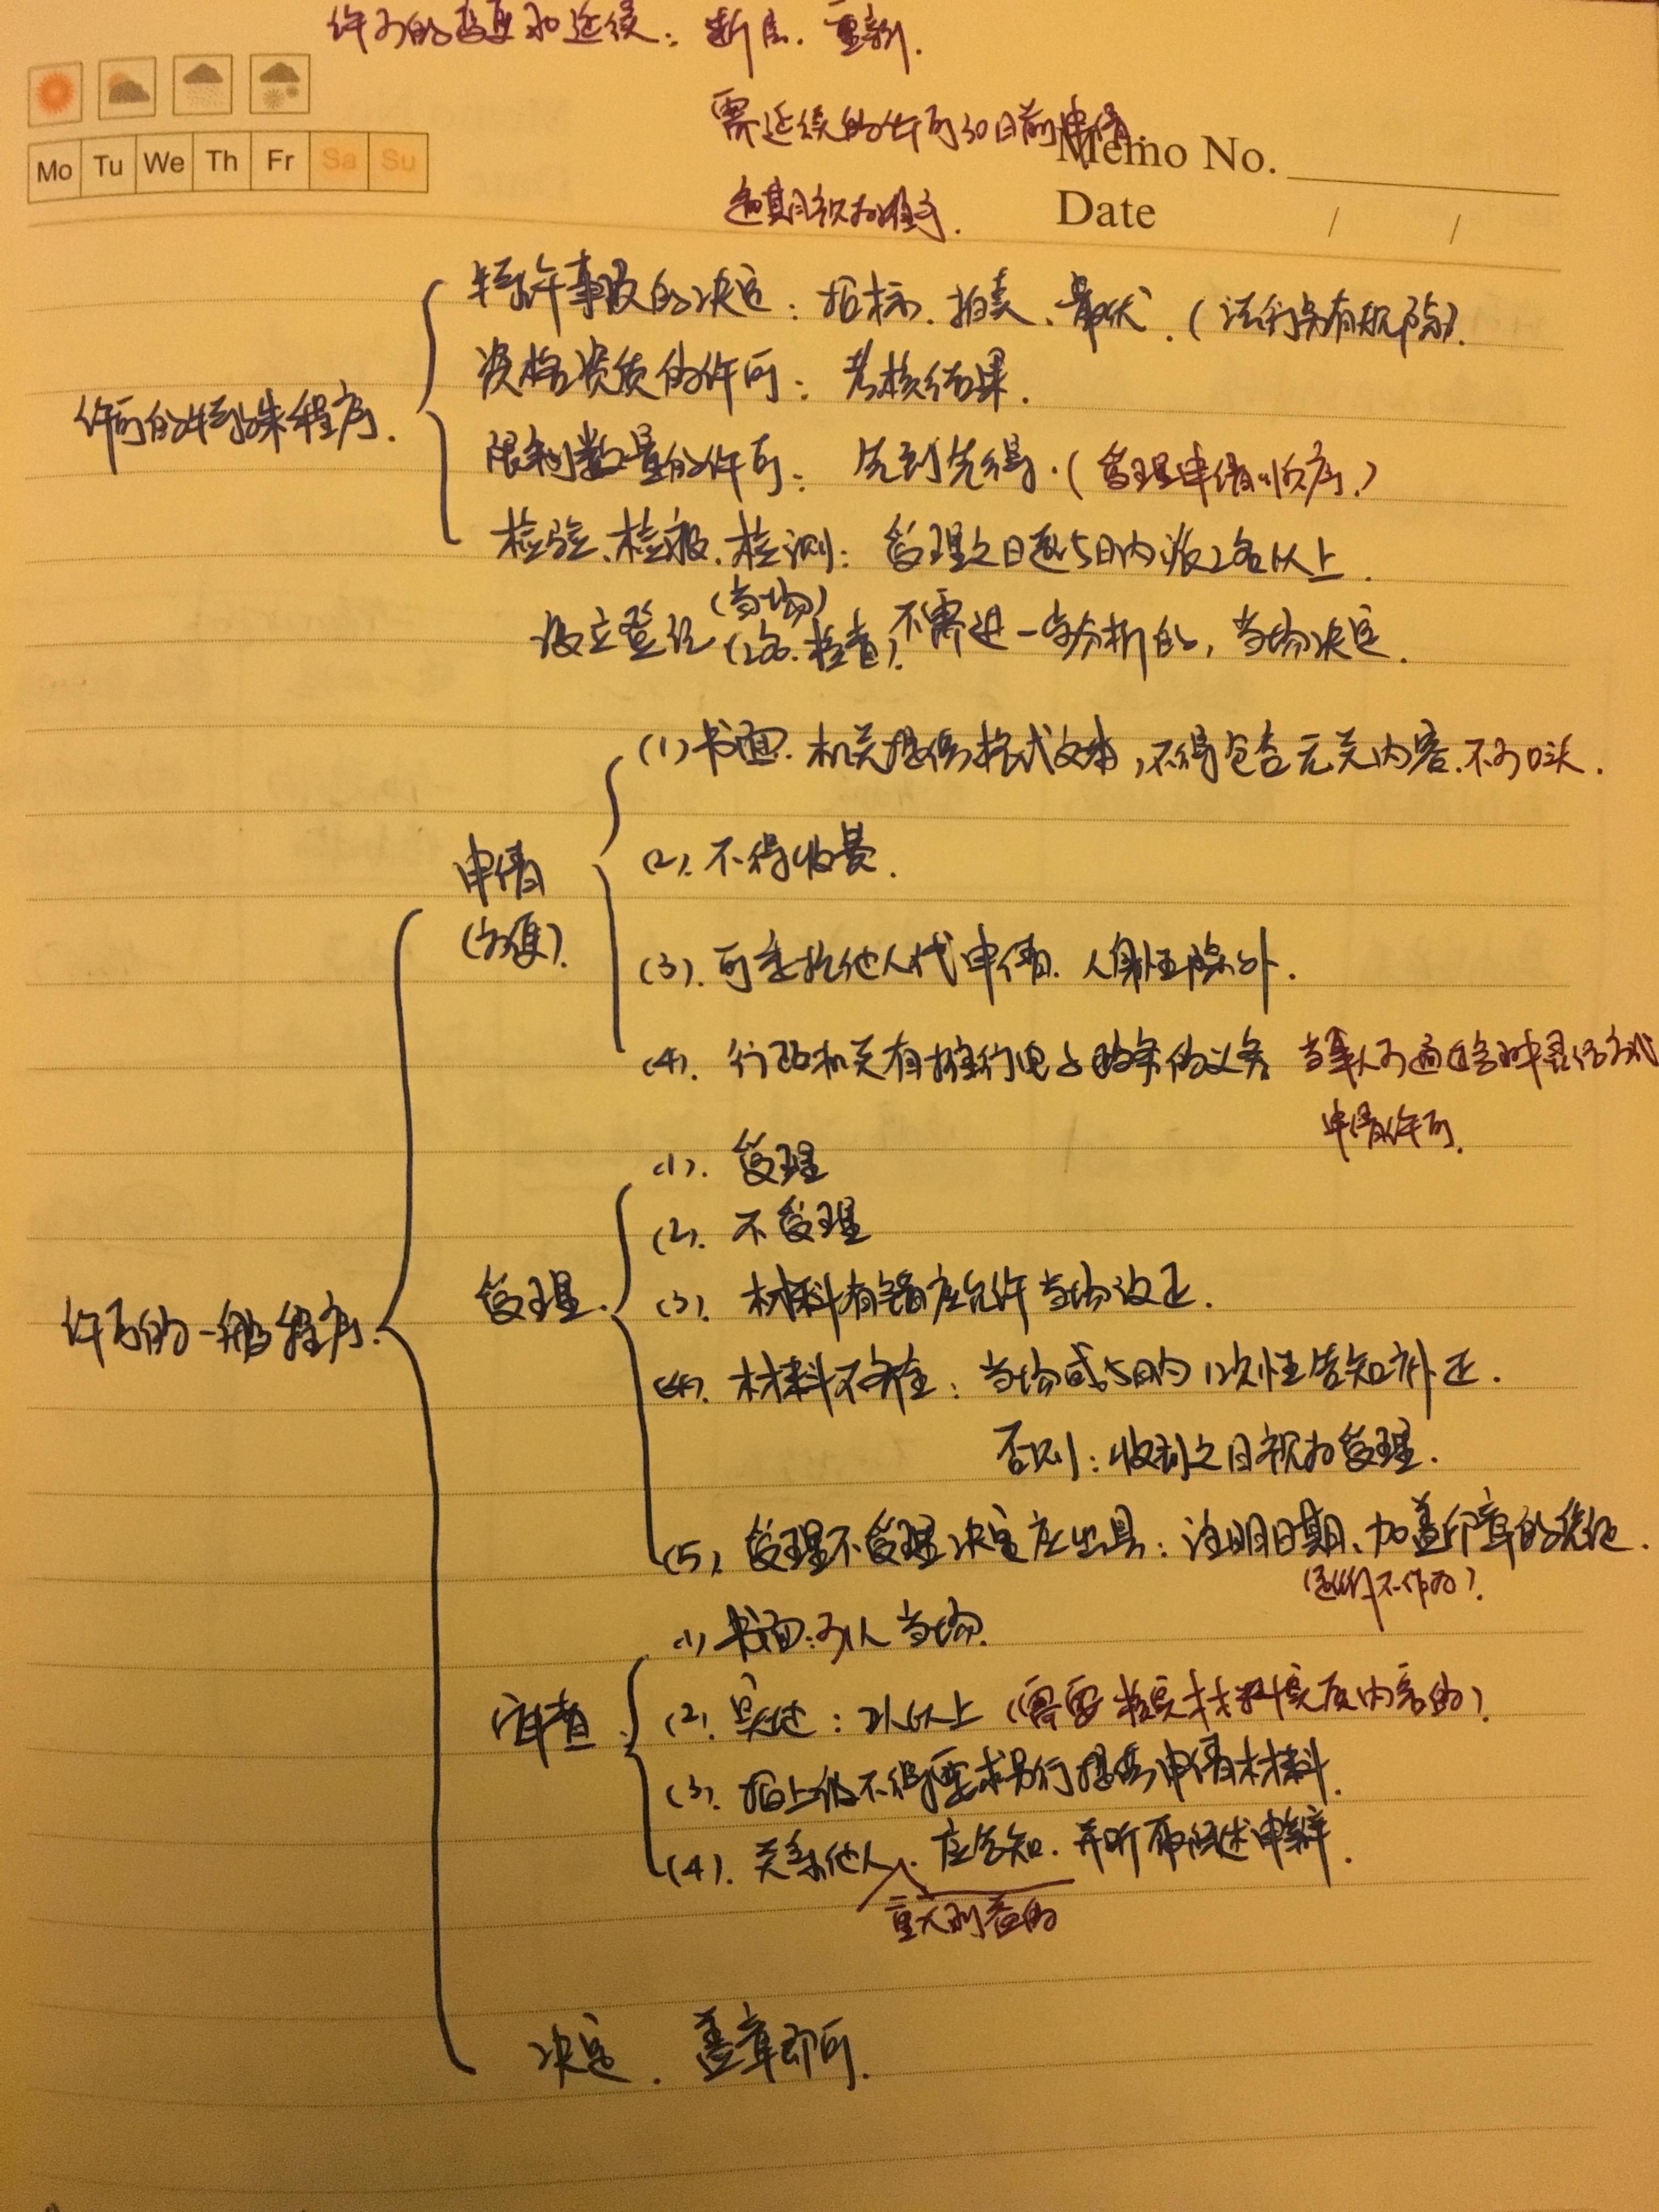 许可的变更和延续：新层．重新．
需延续的许可30日前申请．
Mo Tu We Th Fr Sa Su
Memo No.
逾期视为准予．
Date / /
特许事项的决定：招标、拍卖、最优．（法行另有规除）．
资格资质的许可：考核结果．
许可的特殊程序．
限制数量的许可：先到先得．（受理申请顺序．）
检验、检疫、检测：受理之日起5日内派2名以上．
设立登记（当场）（2名．检查）．不需进一步分析的，当场决定．
(1) 书面．机关提供格式文本，不得包含无关内容．不可口头．
(2)．不得收费．
申请（方便）．
(3)．可委托他人代申请．人身性除外．
(4)．行政机关有推行电子政务的义务 当事人可通过多种通信方式
申请许可．
(1)．受理
(2)．不受理
受理．
(3)．材料有错应允许当场改正．
许可的一般程序．
(4)．材料不齐全：当场或5日内1次性告知补正．
否则：收到之日视为受理．
(5)．受理不受理决定应出具：注明日期、加盖印章的凭证．
（否则不作为）．
(1) 书面：可以当场．
审查．
(2)．实地：2人以上（需要核实材料实质内容的）．
(3)．报上级不得要求另行提供申请材料．
(4)．关系他人．应告知．并听取陈述申辩．
重大利益的
决定．盖章即可．